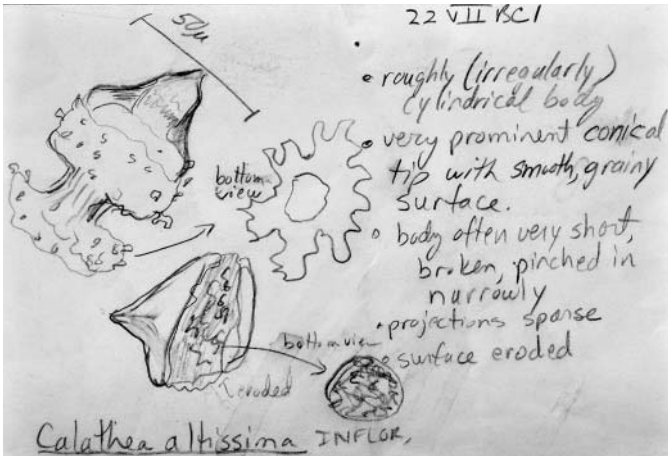 22 VII BCI
50µ
• roughly (irregularly)
cylindrical body
• very prominent conical
tip with smooth, grainy
surface.
bottom
view
• body often very short,
broken, pinched in
narrowly
• projections sparse
bottom view
• surface eroded
eroded
Calathea altissima INFLOR.